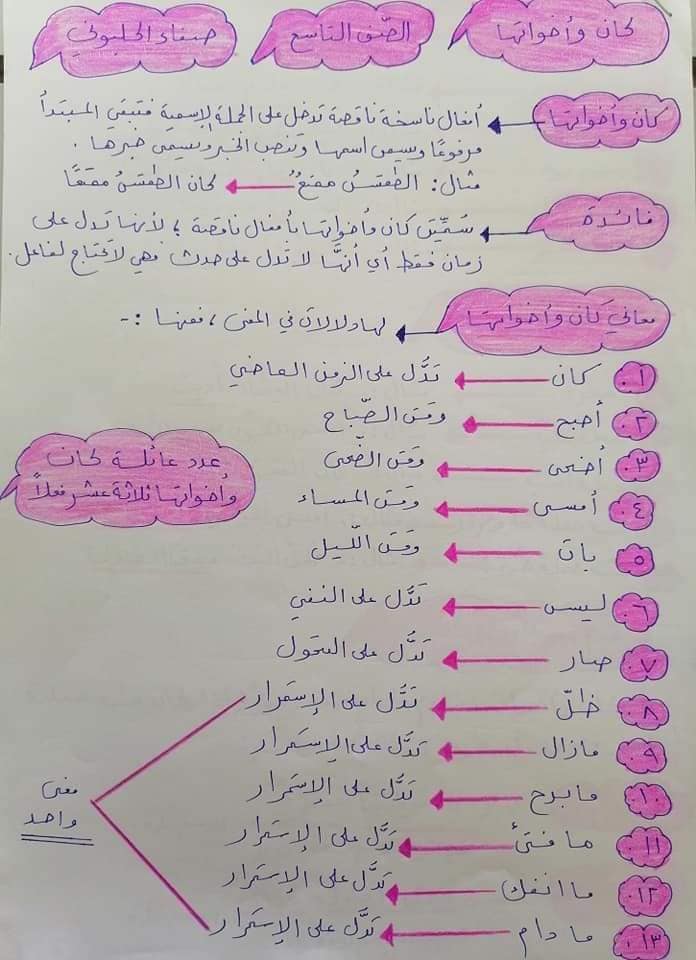 كان وأخواتها
الصّف التاسع
صفاء الحلبوني
كان وأخواتها
أفعال ناسخة ناقصة تدخل على الجملة الإسمية فتبقي المبتدأ
مرفوعًا ويسمى اسمها وتنصب الخبر ويسمى خبرها .
مثال : الطقسُ ممتعٌ كان الطقسُ ممتعًا
فائدة
سُمّيَت كان وأخواتها بأفعال ناقصة ؛ لأنها تدل على
زمان فقط أي أنّها لا تدل على حدث فهي لا تحتاج لفاعل .
معاني كان وأخواتها
لها دلالات في المعنى ، فمنها :-
١. كان تدَّل على الزمن الماضي
٢. أصبح وقت الصّباح
٣. أضحى وقت الضّحى
عدد عائلة كان
وأخواتها ثلاثة عشر فعلاً
٤. أمسى وقت المساء
٥. بات وقت اللّيل
٦. ليس تدَّل على النفي
٧. صار تدَّل على التحول
٨. ظلّ تدَّل على الإستمرار
٩. مازال تدَّل على الإستمرار
١٠. ما برح تدَّل على الإستمرار
معنى
واحد
١١. ما فتئ تدَّل على الإستمرار
١٢. ما انفك تدَّل على الإستمرار
١٣. ما دام تدَّل على الإستمرار